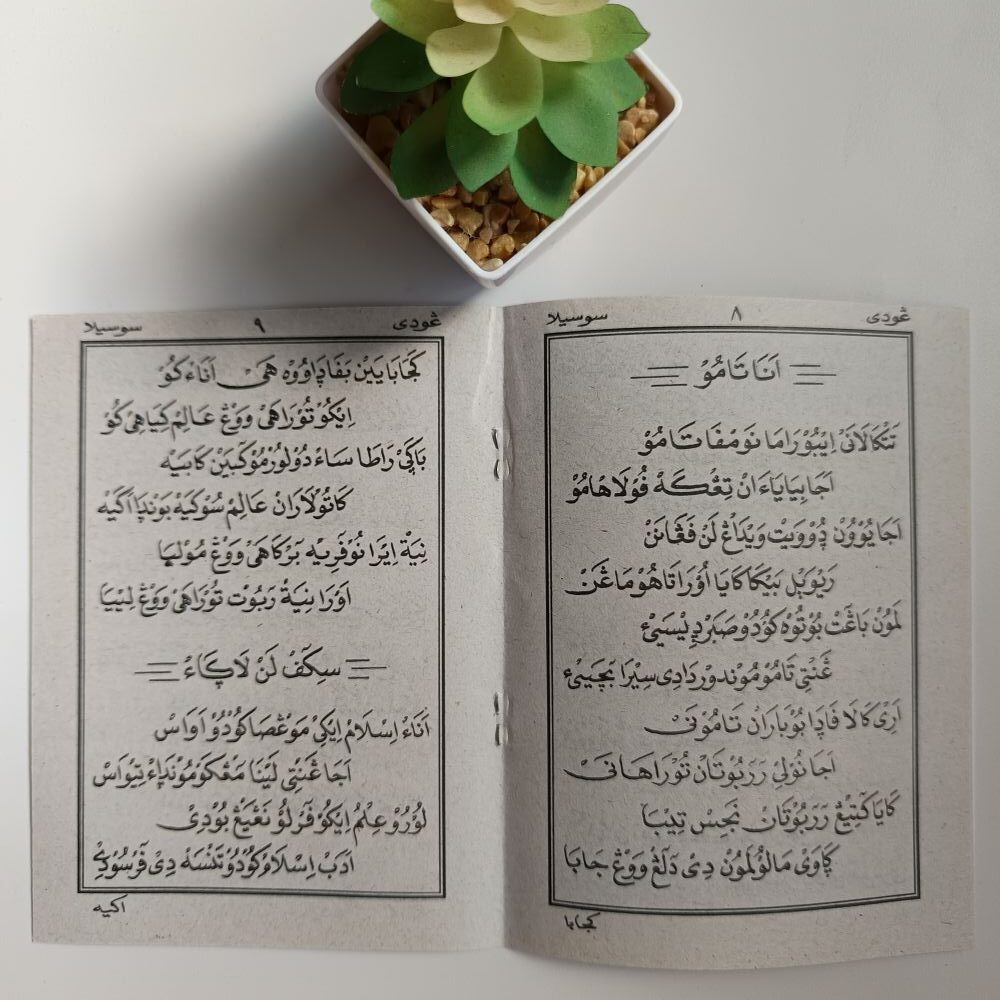 ڠودي ٨ سوسيلا
اَنَا تَامُوْ
تَتْكَالَانَىْ اِيْبُوْرَامَا نَوْمْفَا تَامُوْ
اَجَا بِيَايَاءَانْ تِڠْكَهْ فُوْلَاهَامُوْ
اَجَا يُوْوُنْ دُوْوَيْتْ وَيْدَاڠْ لَنْ فَڠَانَنْ
رَيْوَيْلْ بَيْكَاكَايَا اَوْرَا تَاهُوْ مَاڠَنْ
لَمُوْنْ بَاڠَتْ بُوْتُوْهْ كُوْدُوْ صَبَرْ دِيْسَيْئ
ڠَنْتِيْ تَامُوْ مُوْندُوْرْ دَادِى سِيْرَا بَچَيْئ
اَرِىْ كَالَا فَادَا بُوْبَارَانْ تَامُوْنَىْ
اَجَا نُوْلِيْ رَرَبُوْتَانْ تُوْرَاهَانَىْ
كَايَا كَتِيْڠْ رَرَبُوْتَانْ نَجِسْ تِيْبَا
ڮَاوَىْ مَالُوْ لَمُوْنْ دِىْ دَلَڠْ وَوْڠْ جَابَا
كجابا
ڠودي ٩ سوسيلا
كَجَابَا يَيْنْ بَفَا دَاوُوْهْ هَىْ اَنَاءْ كُوْ
اِيْكُوْ تُوْرَاهَىْ وَوْڠْ عَالِمْ كِيَاهِىْ كُوْ
بَاكَىْ رَاطَا سَاءْ دُوْلُوْرْمُوْ كَبَيْنْ كَابَيْه
كَاتُوْلَارَانْ عَالِمْ سُوْكَيْهْ بَوْنْدَا اَكَيْه
نِيَةْ اِيْرَا نُوْفِرِيْه بَرْكَاهَىْ وَوْڠْ مُوْلْيَا
اَوْرَا نِيَةْ رَبُوْت تُوْرَاهَىْ وَوْڠْ لِيْيَا
سِكَفْ لَنْ لَاڮَاءْ
اَنَاءْ اِسْلَامْ اِيْكِىْ مَوْڠْصَا كُوْدُوْ اَوَاسْ
اَجَا ڠَنْتِىْ لَيْنَا مَڠْكَوْ مُوْنْدَاءْ تِيْوَاسْ
لُوْرُوْ عِلْمُ اِيْكُوْ فَرْلُوْ نَڠَيْڠْ بُوْدِىْ
اَدَبْ اِسْلَامْ كُوْدُوْ تَنْسَهْ دِىْ فَرْسُوْدِىْ
اكيه